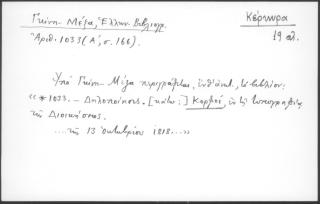 Γκίνη - Μέξα, Ἑλλην. Βιβλιογρ.
Κέρκυρα
Ἀριθ. 1033 (Α', σ. 166).
19 αἰ.
Ὑπὸ Γκίνη - Μέξα περιγράφεται, τὸ βιβλίον:
«*1033. - Δηλοποίησις. [κάτω:] Κορφοί, ἐκ τῆς Τυπογραφίας
τῆς Διοικήσεως.
....τῇ 13 Ὀκτωβρίου 1818....»